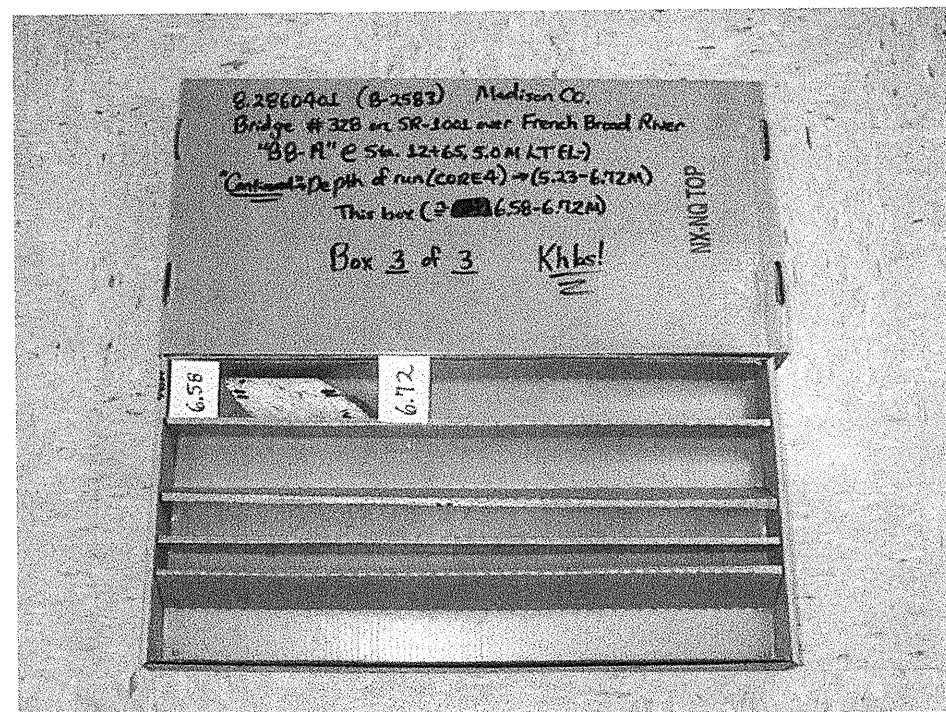 8.2860401 (B-2583) Madison Co.
Bridge #328 on SR-1001 over French Broad River
"BB-A" @ Sta. 12+65, 5.0M LT EL-)
"Continued" Depth of run (CORE4) → (5.23-6.72M)
This box ( 6.58-6.72M)
Box 3 of 3
NX-NQ TOP
6.58
6.72